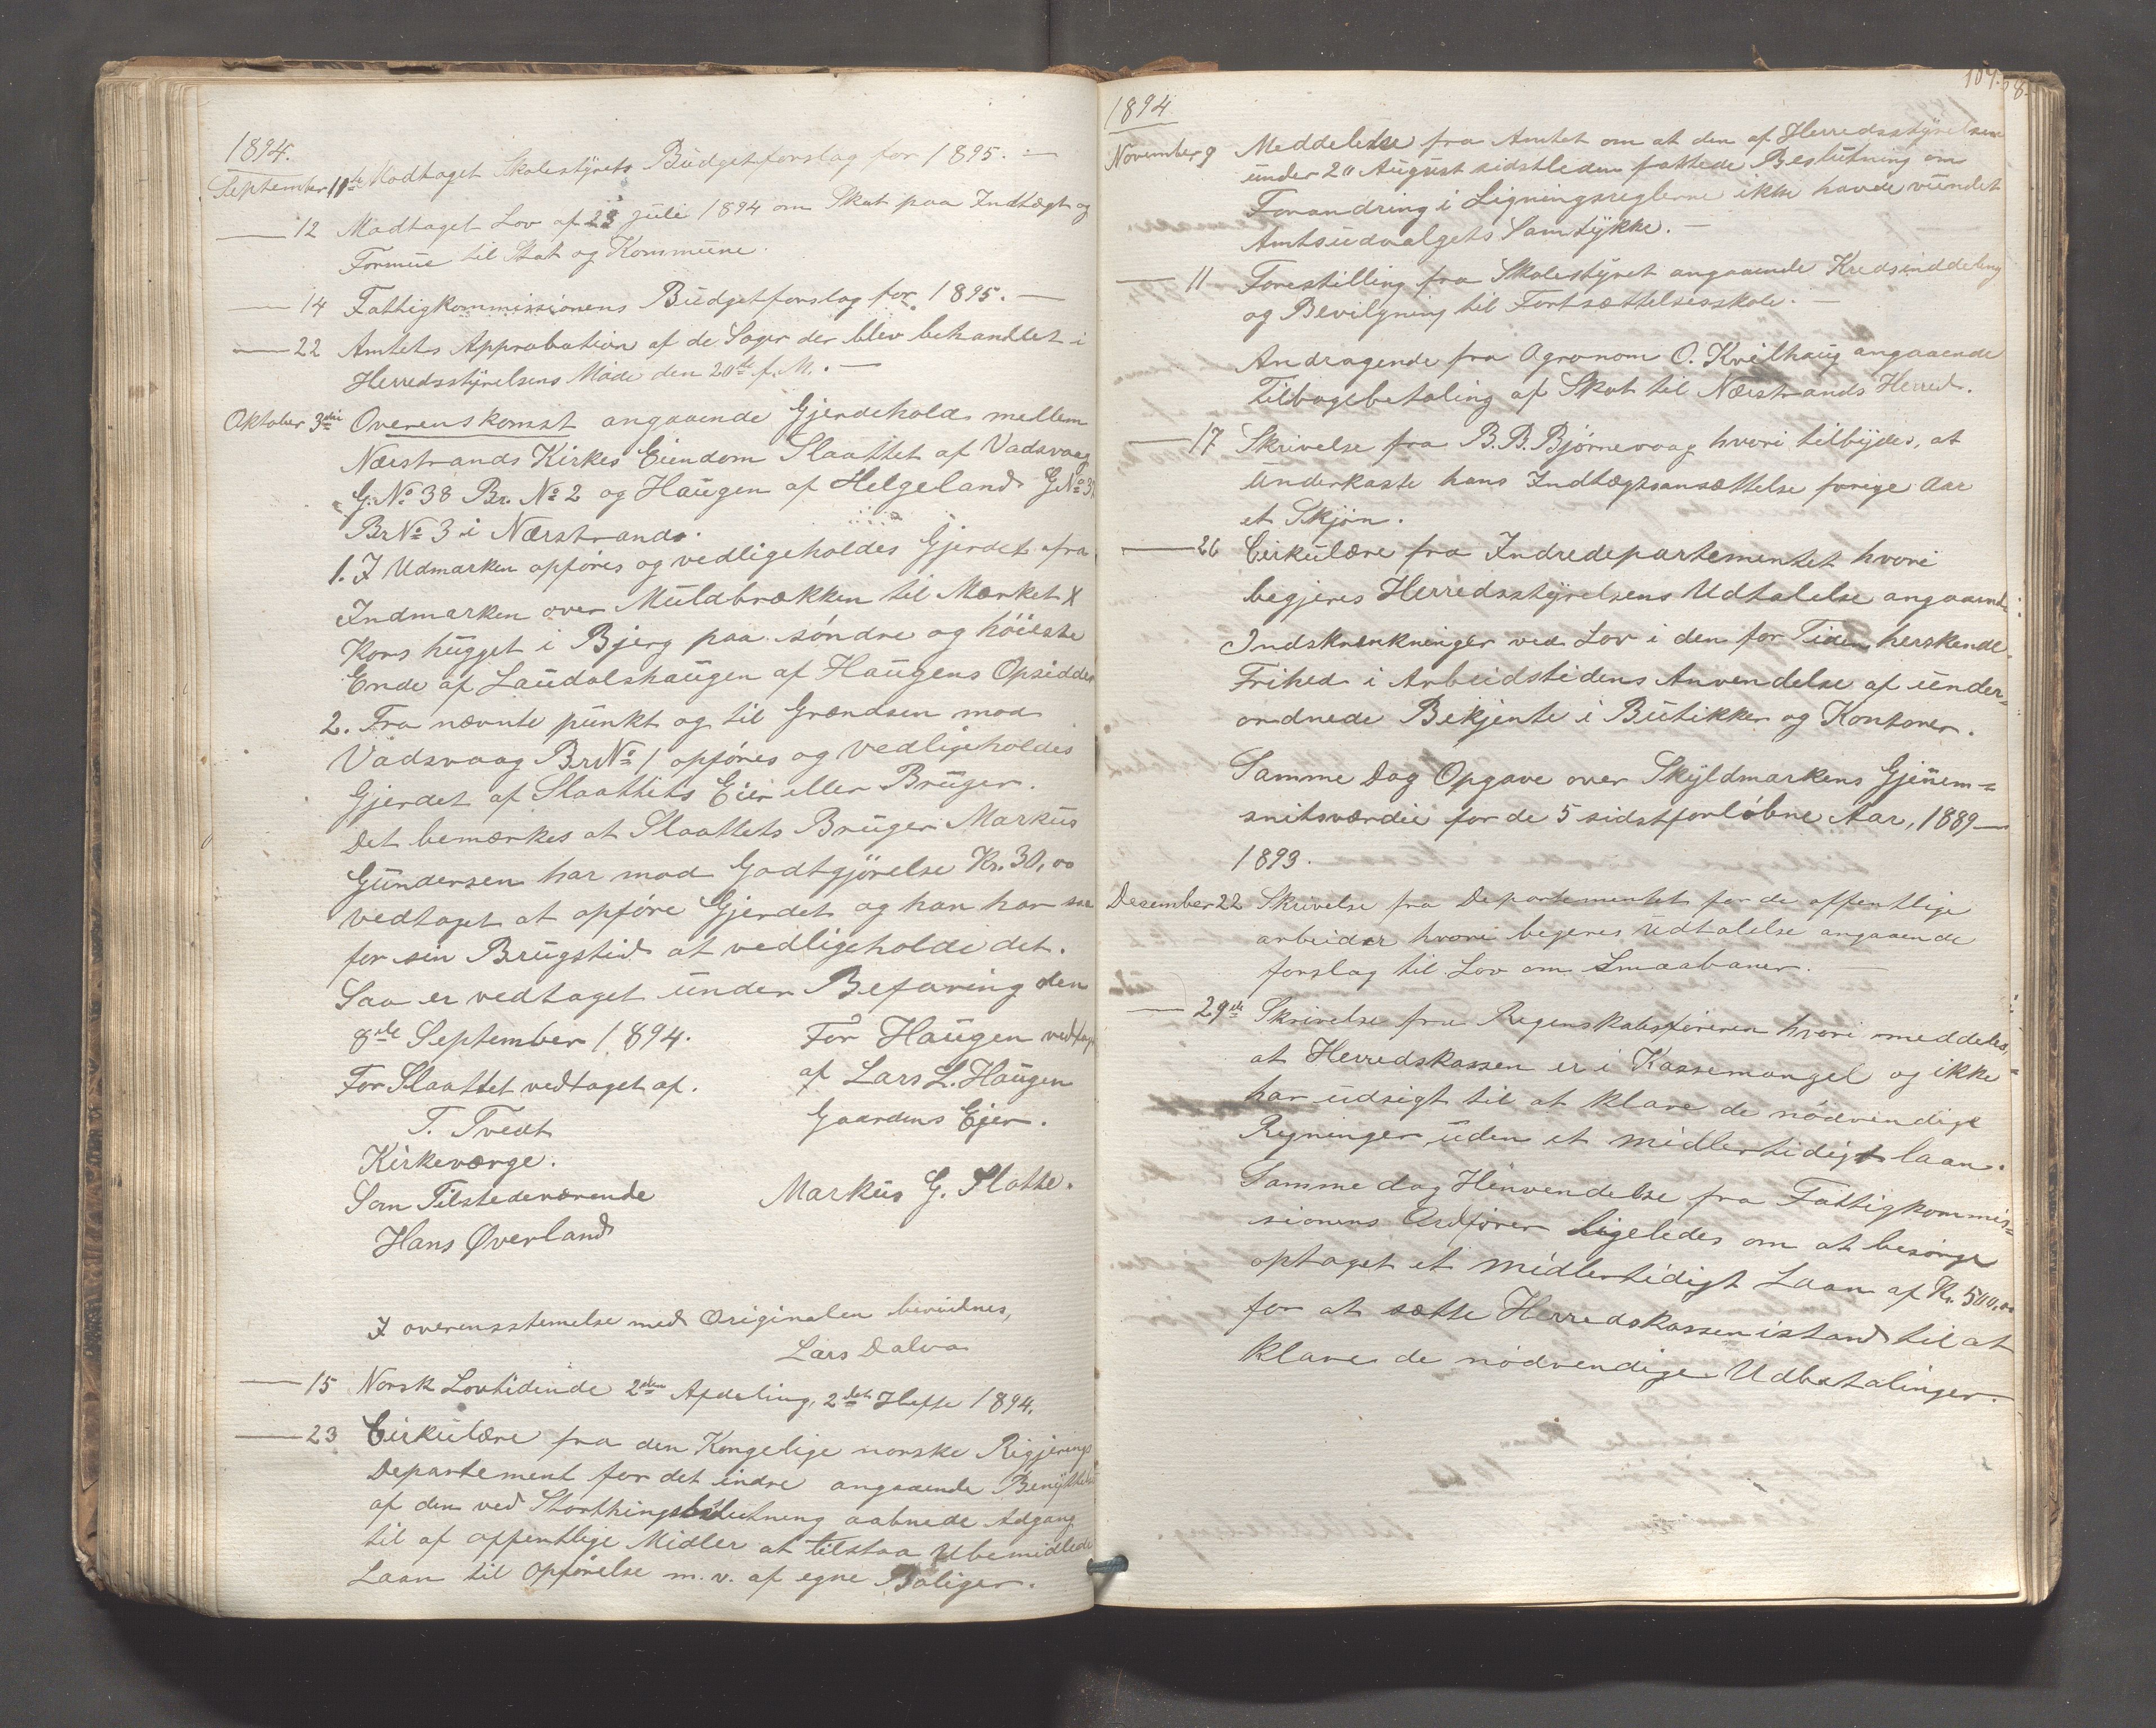 1894.
September 11te Modtaget Skolestyrets Budgetforslag for 1895. —
— 12 Modtaget Lov af 28 juli 1894 om Skat paa Indtægt og
Formue til Stat og Kommune.
— 14 Fattigkommissionens Budgetforslag for 1895. —
— 22 Amtets Approbation af de Sager der blev behandlet i
Herredsstyrelsens Møde den 20de f. M. —
Oktober 3die Overenskomst angaaende Gjerdehold mellem
Nærstrands Kirkes Eiendom Slaattet af Vadsvaag
G. No 38 Br. No 2 og Haugen af Helgeland G No 3
Br No 3 i Nærstrand.
1. I Udmarken opføres og vedligeholdes Gjerdet fra
Indmarken over Muldbrækken til Mærket X
Kors hugget i Bjerg paa søndre og høieste
Ende af Laudalshaugen af Haugens Opsidder
2. Fra nævnte punkt og til Grændsen mod
Vadsvaag Br No 1 opføres og vedligeholdes
Gjerdet af Slaattets Eier eller Bruger.
Det bemærkes at Slaattets Bruger Markus
Gundersen har mod Godtgjørelse Kr. 30,00
vedtaget at opføre Gjerdet og han har saa
for sin Brugstid at vedligeholde det.
Saa er vedtaget under Befaring den
8de September 1894.
For Slaattet vedtaget af.
T. Tvedt
Kirkeværge.
Som Tilstedeværende
Hans Øverland
For Haugen vedtaget
af Lars L. Haugen
Gaardens Ejer.
Markus G. Slatte.
I overensstemelse med Originalen bevidnes,
Lars Dalva
— 15 Norsk Lovtidende 2den Afdeling, 2det Hefte 1894.
— 23 Cirkulære fra den Kongelige norske Rigjerings
Departement for det indre angaaende Benyttelse
af den ved Storthingsbeslutning aabnede Adgang
til af offentlige Midler at tilstaa Ubemidlede
Laan til Opførelse m. v. af egne Boliger.
1894
November 9 Meddelelse fra Amtet om at den af Herredsstyrelsen
under 20 August sidstleden fattede Beslutning om
Forandring i Ligningsreglerne ikke havde vundet
Amtsudvalgets Samtykke. —
— 11 Forestilling fra Skolestyret angaaende Kredsinddeling
og Bevilgning til Fortsættelsesskole. —
Andragende fra Agronom O. Kvilhaug angaaende
Tilbagebetaling af Skat til Nærstrands Herred.
— 17 Skrivelse fra B. B. Bjørnevaag hvori tilbydes, at
underkaste hans Indtægtsansættelse forige Aar
et Skjøn.
— 26 Cirkulære fra Indredepartementet hvori
begjeres Herredsstyrelsens Udtalelse angaaende
Indskrænkninger ved Lov i den for Tiden herskende
Frihed i Arbeidstidens Anvendelse af under-
ordnede Bekjente i Butikker og Kontorer.
Samme Dag Opgave over Skyldmarkens Gjenem-
snitsværdie for de 5 sidstforløbne Aar, 1889—
1893.
Desember 22 Skrivelse fra Departementet for de offentlige
arbeider hvori begeres Udtalelse angaaende
forslag til Lov om Smaabaner. —
— 29de Skrivelse fra Regenskabsføreren hvori meddeles,
at Herredskassen er i Kassemangel og ikke
har udsigt til at klare de nødvendige
Regninger uden et midlertidigt laan.
Samme dag Henvendelse fra Fattigkommis-
sionens Ordfører ligeledes om at besørge
optaget et midlertidigt Laan af Kr. 500,00
for at sætte Herredskassen istand til at
klare de nødvendige Udbetalinger.